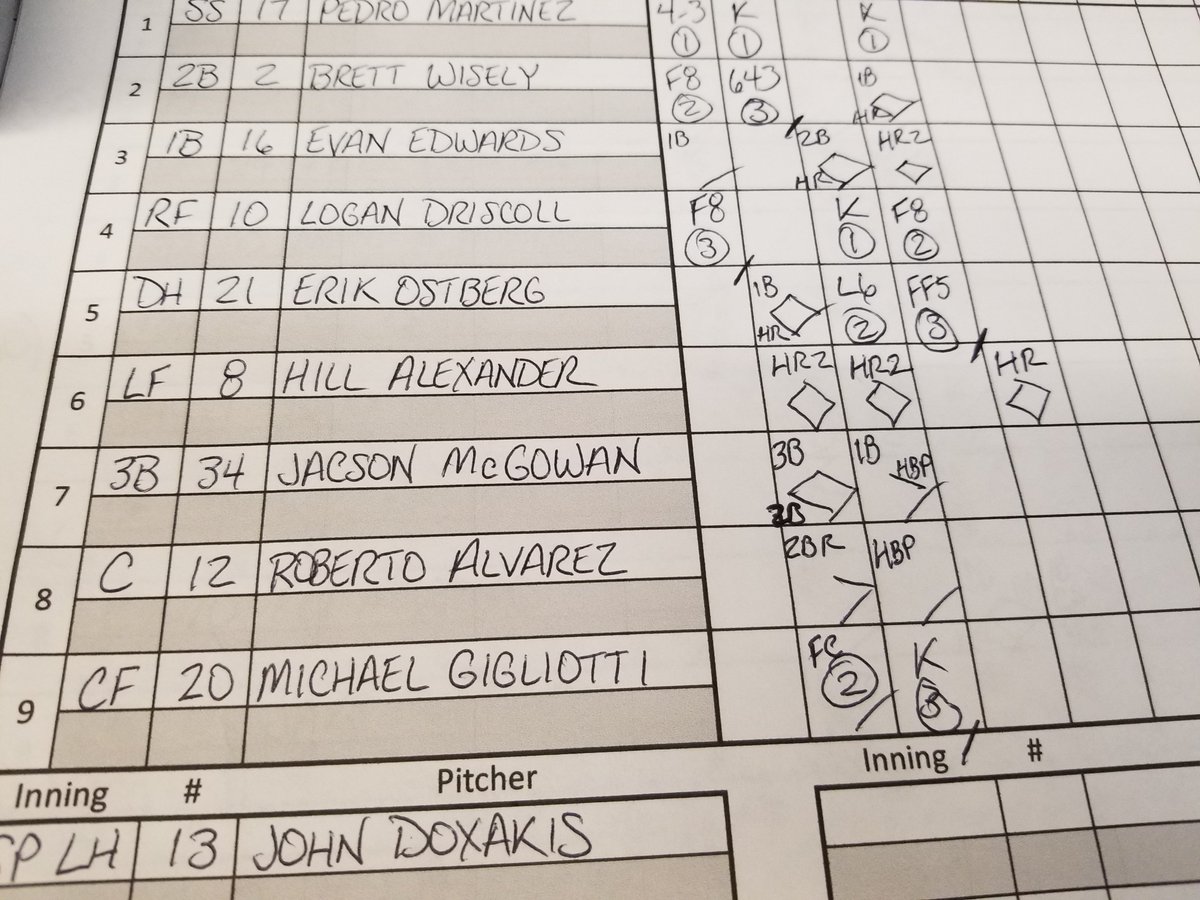 1 SS 17 PEDRO MARTINEZ 4-3 K K
1 1 1
2 2B 2 BRETT WISELY F8 643 1B
2 3 HR
3 1B 16 EVAN EDWARDS 1B 2B HR2
HR
4 RF 10 LOGAN DRISCOLL F8 K F8
3 1 2
5 DH 21 ERIK OSTBERG 1B L6 FF5
HR 2 3
6 LF 8 HILL ALEXANDER HR2 HR2 HR
7 3B 34 JACSON McGOWAN 3B 1B HBP
2B
8 C 12 ROBERTO ALVAREZ 2BR HBP
9 CF 20 MICHAEL GIGLIOTTI FC K
2 3
Inning # Pitcher Inning #
SP LH 13 JOHN DOXAKIS